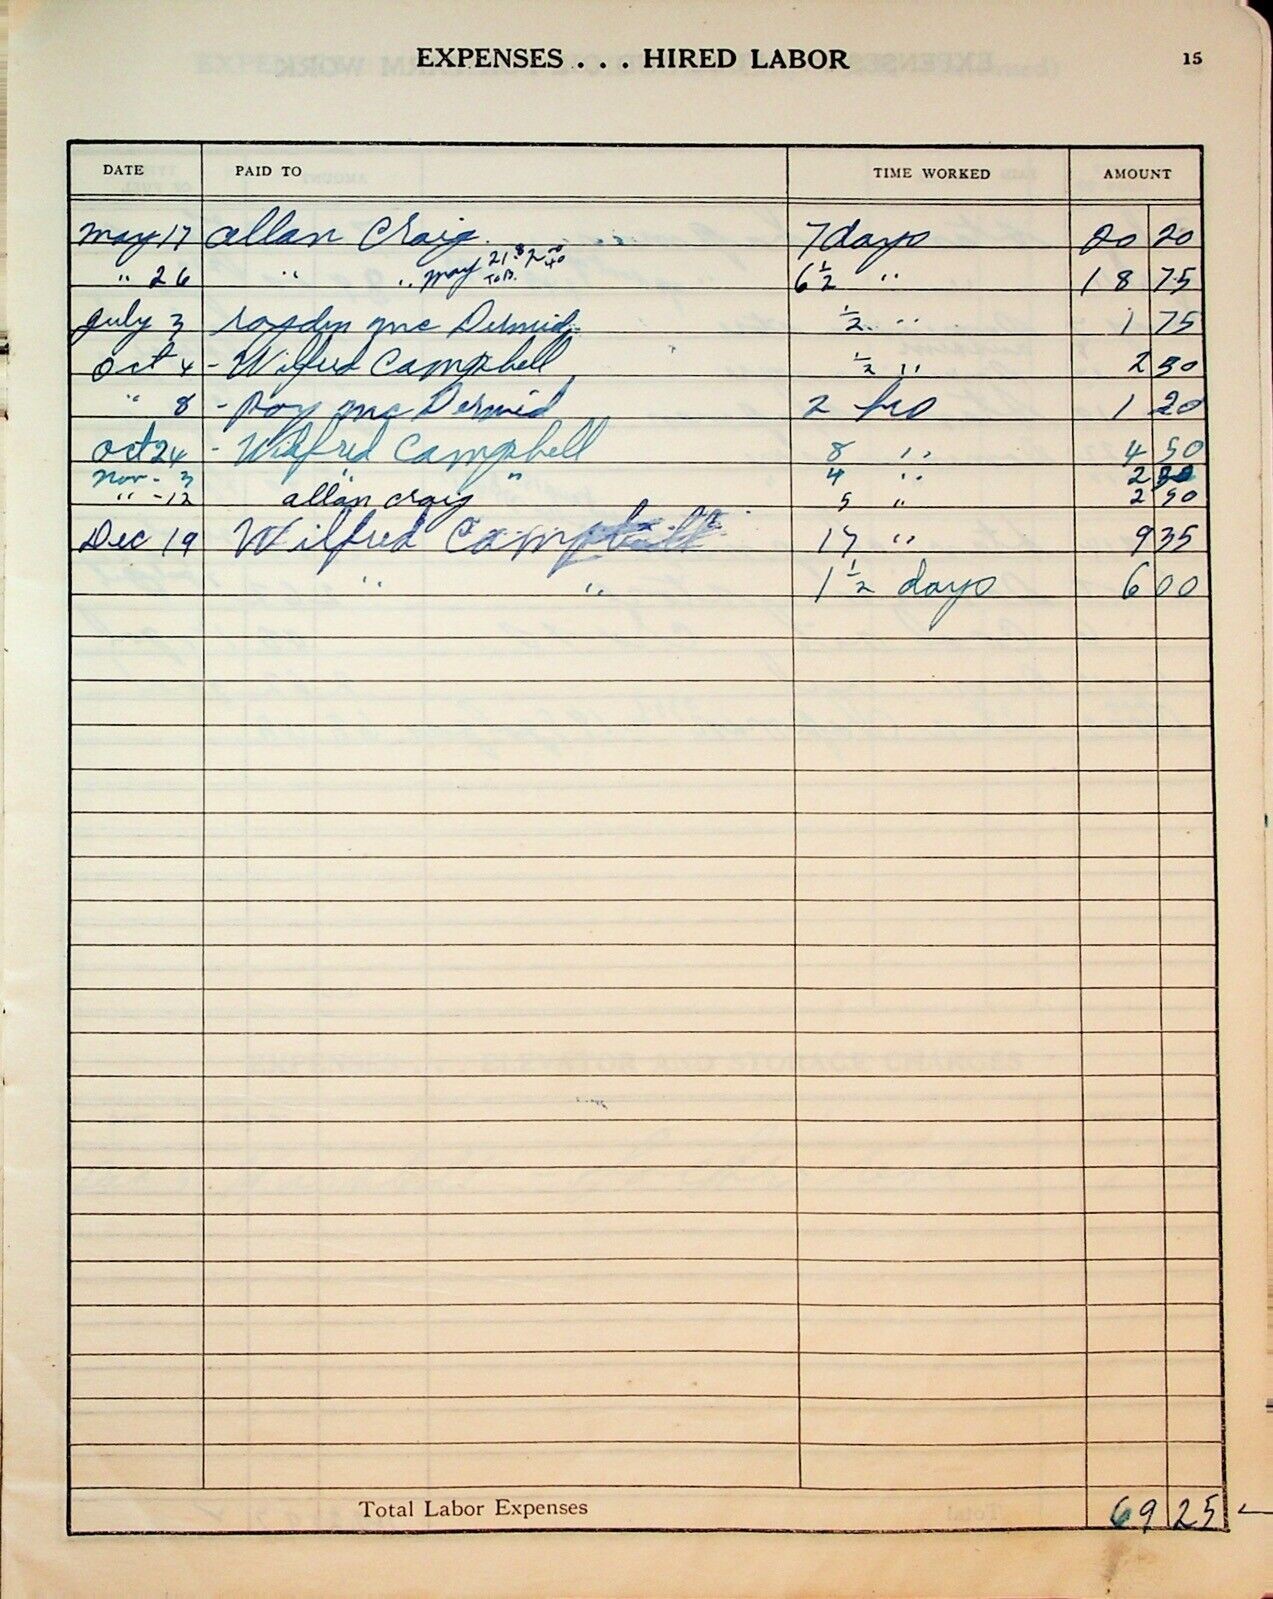 EXPENSES . . . HIRED LABOR 15
DATE PAID TO TIME WORKED AMOUNT
May 17 Allan Craig 7 days 20 20
" 26 " " May 6 1/2 " 18 75
July 3 Mc Dermid 1/2 " 1 75
Oct 4 - Wilfred Campbell 1/2 " 2
" 8 - Roy Mc Dermid 2 hrs 1 20
Oct 24 - Wilfred Campbell 8 " 4 50
Nov - 3 " " 4 " 2
" - 12 Allan Craig 5 " 2 50
Dec 19 Wilfred Campbell 17 " 9 35
" " 1 1/2 days 6 00
Total Labor Expenses 69 25